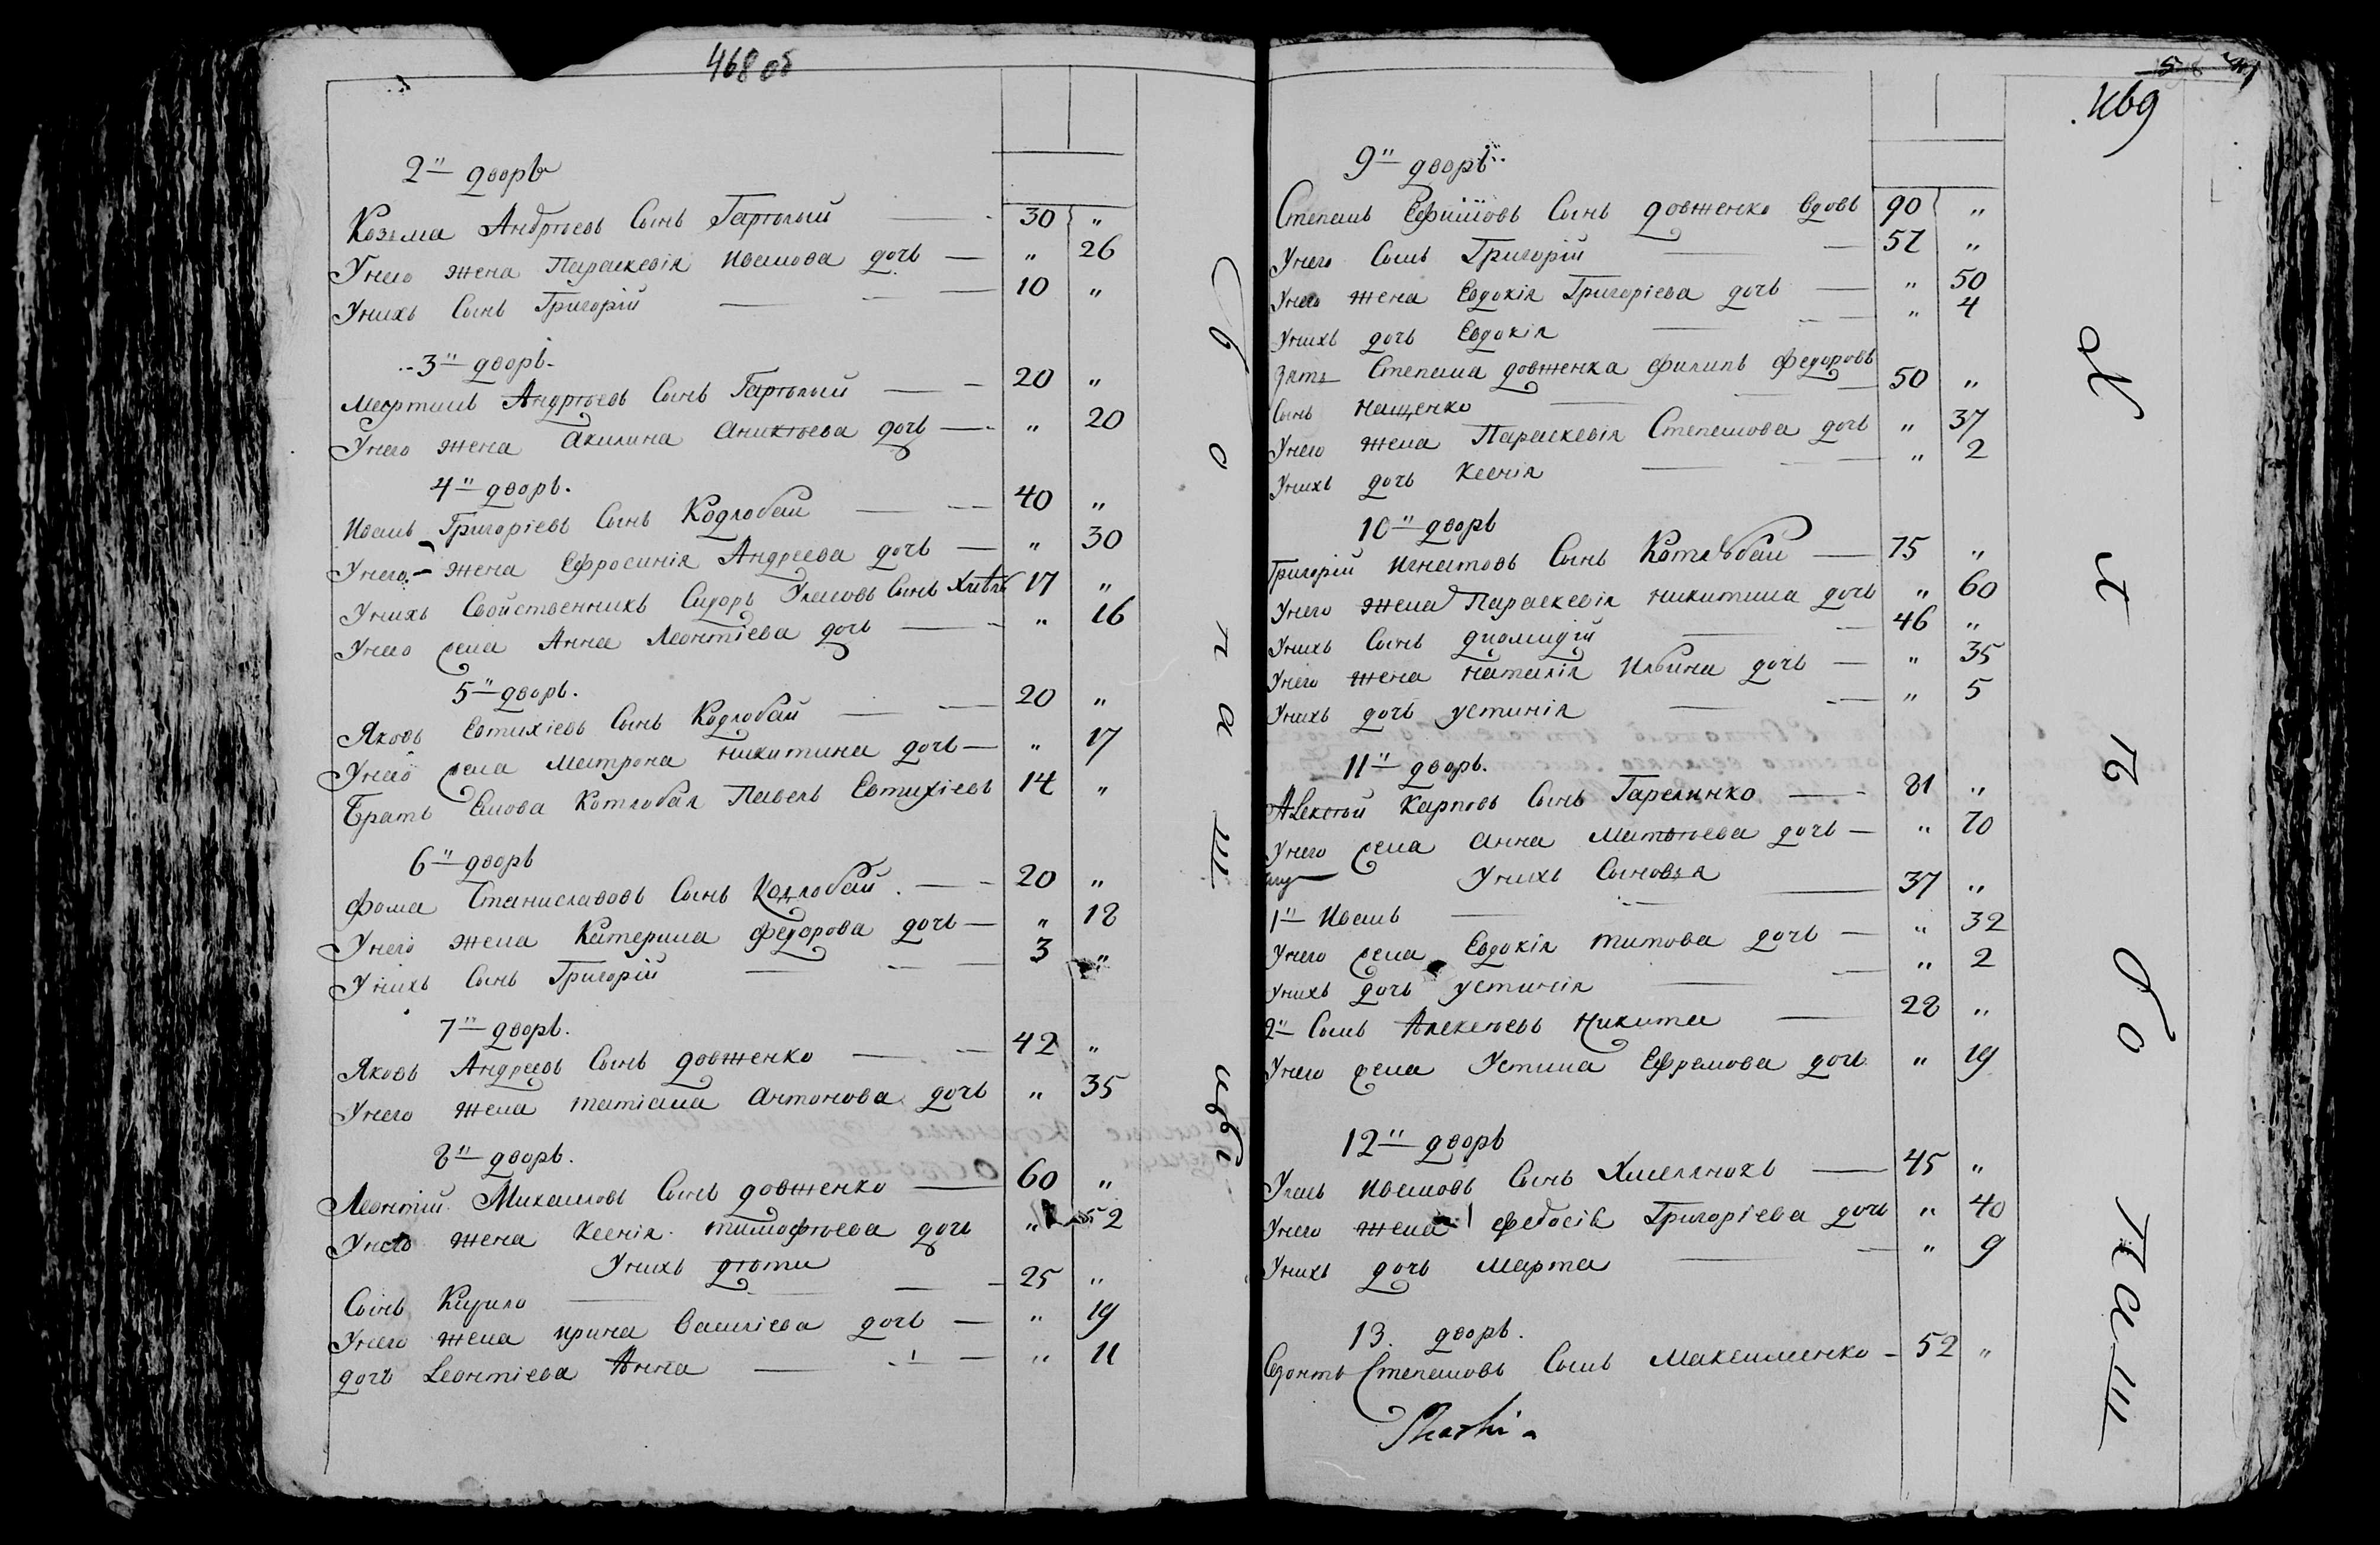 468 об
2й дворъ
Козьма Андрѣевъ Сынъ Гартолый — 30 "
Унего жена Параскевія Иванова дочь — " 26
Унихъ Сынъ Григорій — 10 "
3й дворъ.
Мартинъ Андрѣевъ Сынъ Гартолый — 20 "
Унего жена Акилина Аникѣева дочь — " 20
4й дворъ.
Иванъ Григоріевъ Сынъ Кодлобай — 40 "
Унего жена Ефросинія Андреева дочь — " 30
Унихъ Свойственникъ Сидоръ Улановъ Сынъ 17 "
Унего жена Анна Леонтіева дочь — " 16
5й дворъ.
Яковъ Евтихіевъ Сынъ Кодлобай — 20 "
Унего жена Матрона Никитина дочь — " 17
Братъ Якова Котлобая Павелъ Евтихіевъ 14 "
6й дворъ
Фома Станиславовъ Сынъ Кодлобай — 20 "
Унего жена Катерина Федорова дочь — " 18
Унихъ Сынъ Григорій — 3 "
7й дворъ.
Яковъ Андреевъ Сынъ Довженко — 42 "
Унего жена Татіана Антонова дочь " 35
8й дворъ.
Леонтій Михаиловъ Сынъ Довженко — 60 "
Унего жена Ксенія Тимофѣева дочь " 52
Унихъ дѣти
Сынъ Кирило — 25 "
Унего жена Ирина Василіева дочь — " 19
дочь Леонтіева Анна — " 11
469
9й дворъ
Степанъ Ефимовъ Сынъ Довженко вдовъ 90 "
Унего Сынъ Григорій — 57 "
Унего жена Евдокія Григоріева дочь — " 50
Унихъ дочь Евдокія — " 4
Зять Степана Довженка Филипъ Федоровъ
Сынъ Нащенко — 50 "
Унего жена Параскевія Степанова дочь " 37
Унихъ дочь Ксенія — " 2
10й дворъ
Григорій Игнатовъ Сынъ Котлобай — 75 "
Унего жена Параскевія Никитина дочь " 60
Унихъ Сынъ Диомидій — 46 "
Унего жена Наталія Ильина дочь — " 35
Унихъ дочь Устинія — " 5
11й дворъ.
Алексѣй Карповъ Сынъ Гарелинко — 81 "
Унего жена Анна Матвѣева дочь — " 70
Унихъ Сыновья
1й Иванъ — 37 "
Унего жена Евдокія Титова дочь — " 32
Унихъ дочь Устинія — " 2
2й Сынъ Алексѣевъ Никита — 28 "
Унего жена Устина Ефремова дочь " 19
12й дворъ
Улянъ Ивановъ Сынъ Хмелянохъ — 45 "
Унего жена Федосія Григоріева дочь " 40
Унихъ дочь Марта — " 9
13. дворъ.
Степановъ Сынъ Максименко — 52 "